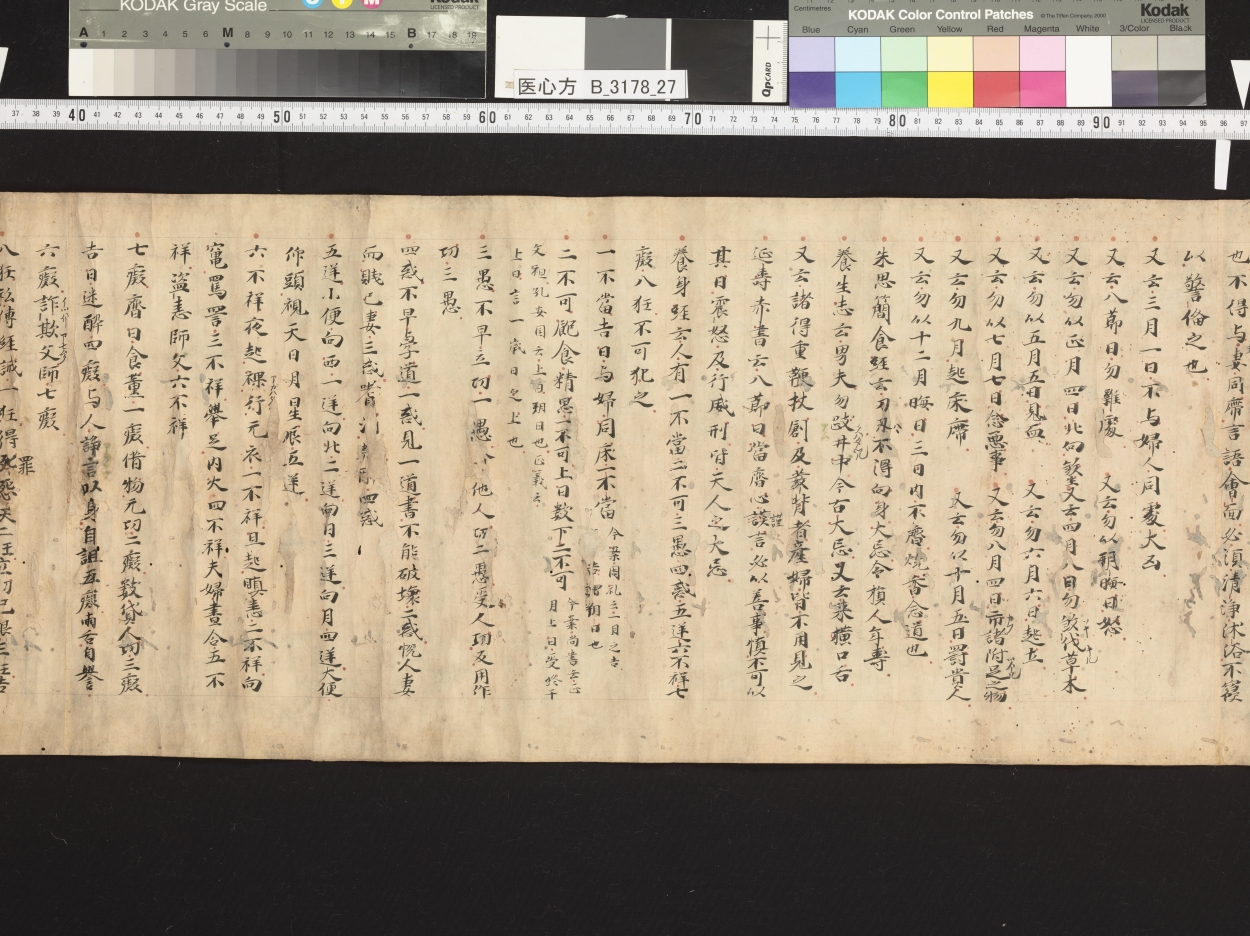 KODAK Gray Scale
Kodak
LICENSED PRODUCT
A 1 2 3 4 5 6 M 8 9 10 11 12 13 14 15 B 17 18 19
医心方 B_3178_27
QpCARD
Centimetres
KODAK Color Control Patches
© The Tiffen Company, 2000
Kodak
LICENSED PRODUCT
Blue Cyan Green Yellow Red Magenta White 3/Color Black
37 38 39 40 41 42 43 44 45 46 47 48 49 50 51 52 53 54 55 56 57 58 59 60 61 62 63 64 65 66 67 68 69 70 71 72 73 74 75 76 77 78 79 80 81 82 83 84 85 86 87 88 89 90 91 92 93 94 95 96 97
也不得与妻同席言語會面必須清浄沐浴不寝
以警倫之也
又云三月一日不与婦人同處大凶
又云八節日勿雜處 又云勿以朔晦日怒
又云勿以正月四日北向煞生又云四月八日勿煞伐草木
又云勿以五月五日見血 又云勿六月六日起土
又云勿以七月七日念惡事 又云勿八月四日市諸附足之物
又云勿九月起床席 又云勿以十月五日罸貴人
又云勿以十二月晦日三日内不齋燒香念道也
朱思簡食經云刀刃不得向身大忌令損人年壽
養生志云男夫勿跂井中今古大忌又云来横口舌
又云諸得重鞭杖創及發背者産婦皆不用見之
延壽赤書云八節日當齋心謹言必以善事慎不可以
其日震怒及行威刑皆天人之大忌
養身經云人有一不當二不可三愚四惑五逆六不祥七
癡八狂不可犯之
一不當吉日与婦同床一不當
二不可飽食精思一不可上日数下二不可
上日言一歳日之上也
三愚不早立功一愚 他人功二愚受人功反用作
功三愚
四惑不早學道一惑見一道書不能破壊二惑悦人妻
而賤己妻三惑嗜酒 四惑
五逆小便向西一逆向北二逆向日三逆向月四逆大便
仰頭視天日月星辰五逆
六不祥夜起裸行无衣一不祥旦起瞋恚二不祥向
竃罵詈三不祥舉足内火四不祥夫婦晝合五不
祥盗恚師父六不祥
七癡齋日食薫一癡借物元功二癡数貸人功三癡
吉日迷醉四癡与人諍言以身自詛五癡両舌自譽
六癡詐欺父師七癡
八狂私傳經誡一狂得罪怨天二狂立功已恨三狂吉